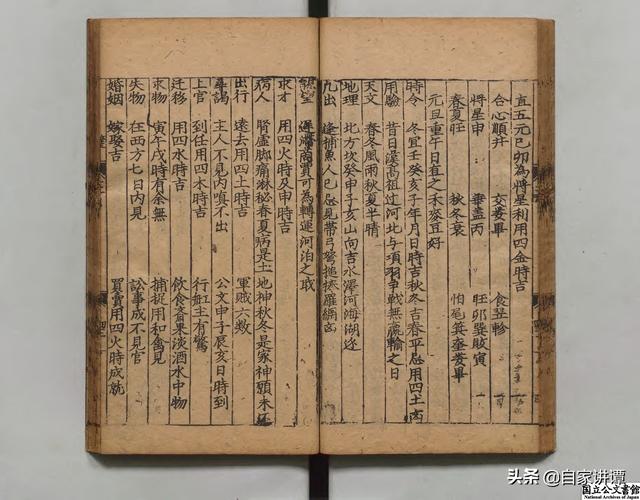 直五元己卯為將星利用四金時吉
合心顛井 交婁畢 食昱軫
將星申 垂盡丙 旺卯巽敗寅
春夏旺 秋冬衰 怕尾箕奎婁畢
元旦重午日直之禾麥豆好
時令 冬宜壬癸亥子年月日時吉秋冬吉春平忌用四土
用驗 昔日漢高祖过河北与項羽爭戰無 輸之日
天文 春冬風雨秋夏半晴
地理 北方坎癸申子亥山向吉水澤河海湖近
凡出 逢捕魚人已忌見帶弓弩 羅網
商賈可為轉運河泊之
求才 用四火時及申時吉
病人 腎虛脚痛淋秘春夏病是土 地神秋冬是家神願未还
出行 遠去用四土時吉 軍賊六数
尋謁 主人不見内嗔不出 公文申子辰亥日時到
上官 到任用四木時吉 行船主有驚
迁移 用四水時吉 飲食斎果淡酒水中物
求物 寅午戌時有余無 捕捉用和禽見
失物 在西方七日内見 訟事成不見官
婚姻 嫁娶吉 買賣用四火時成就
头条 @自家讲谭
国立公文書館
National Archives of Japan